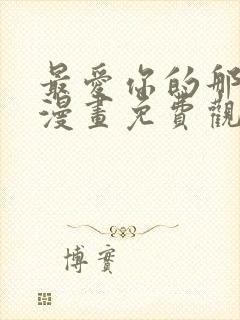 最愛你的那
漫畫免費觀
博實